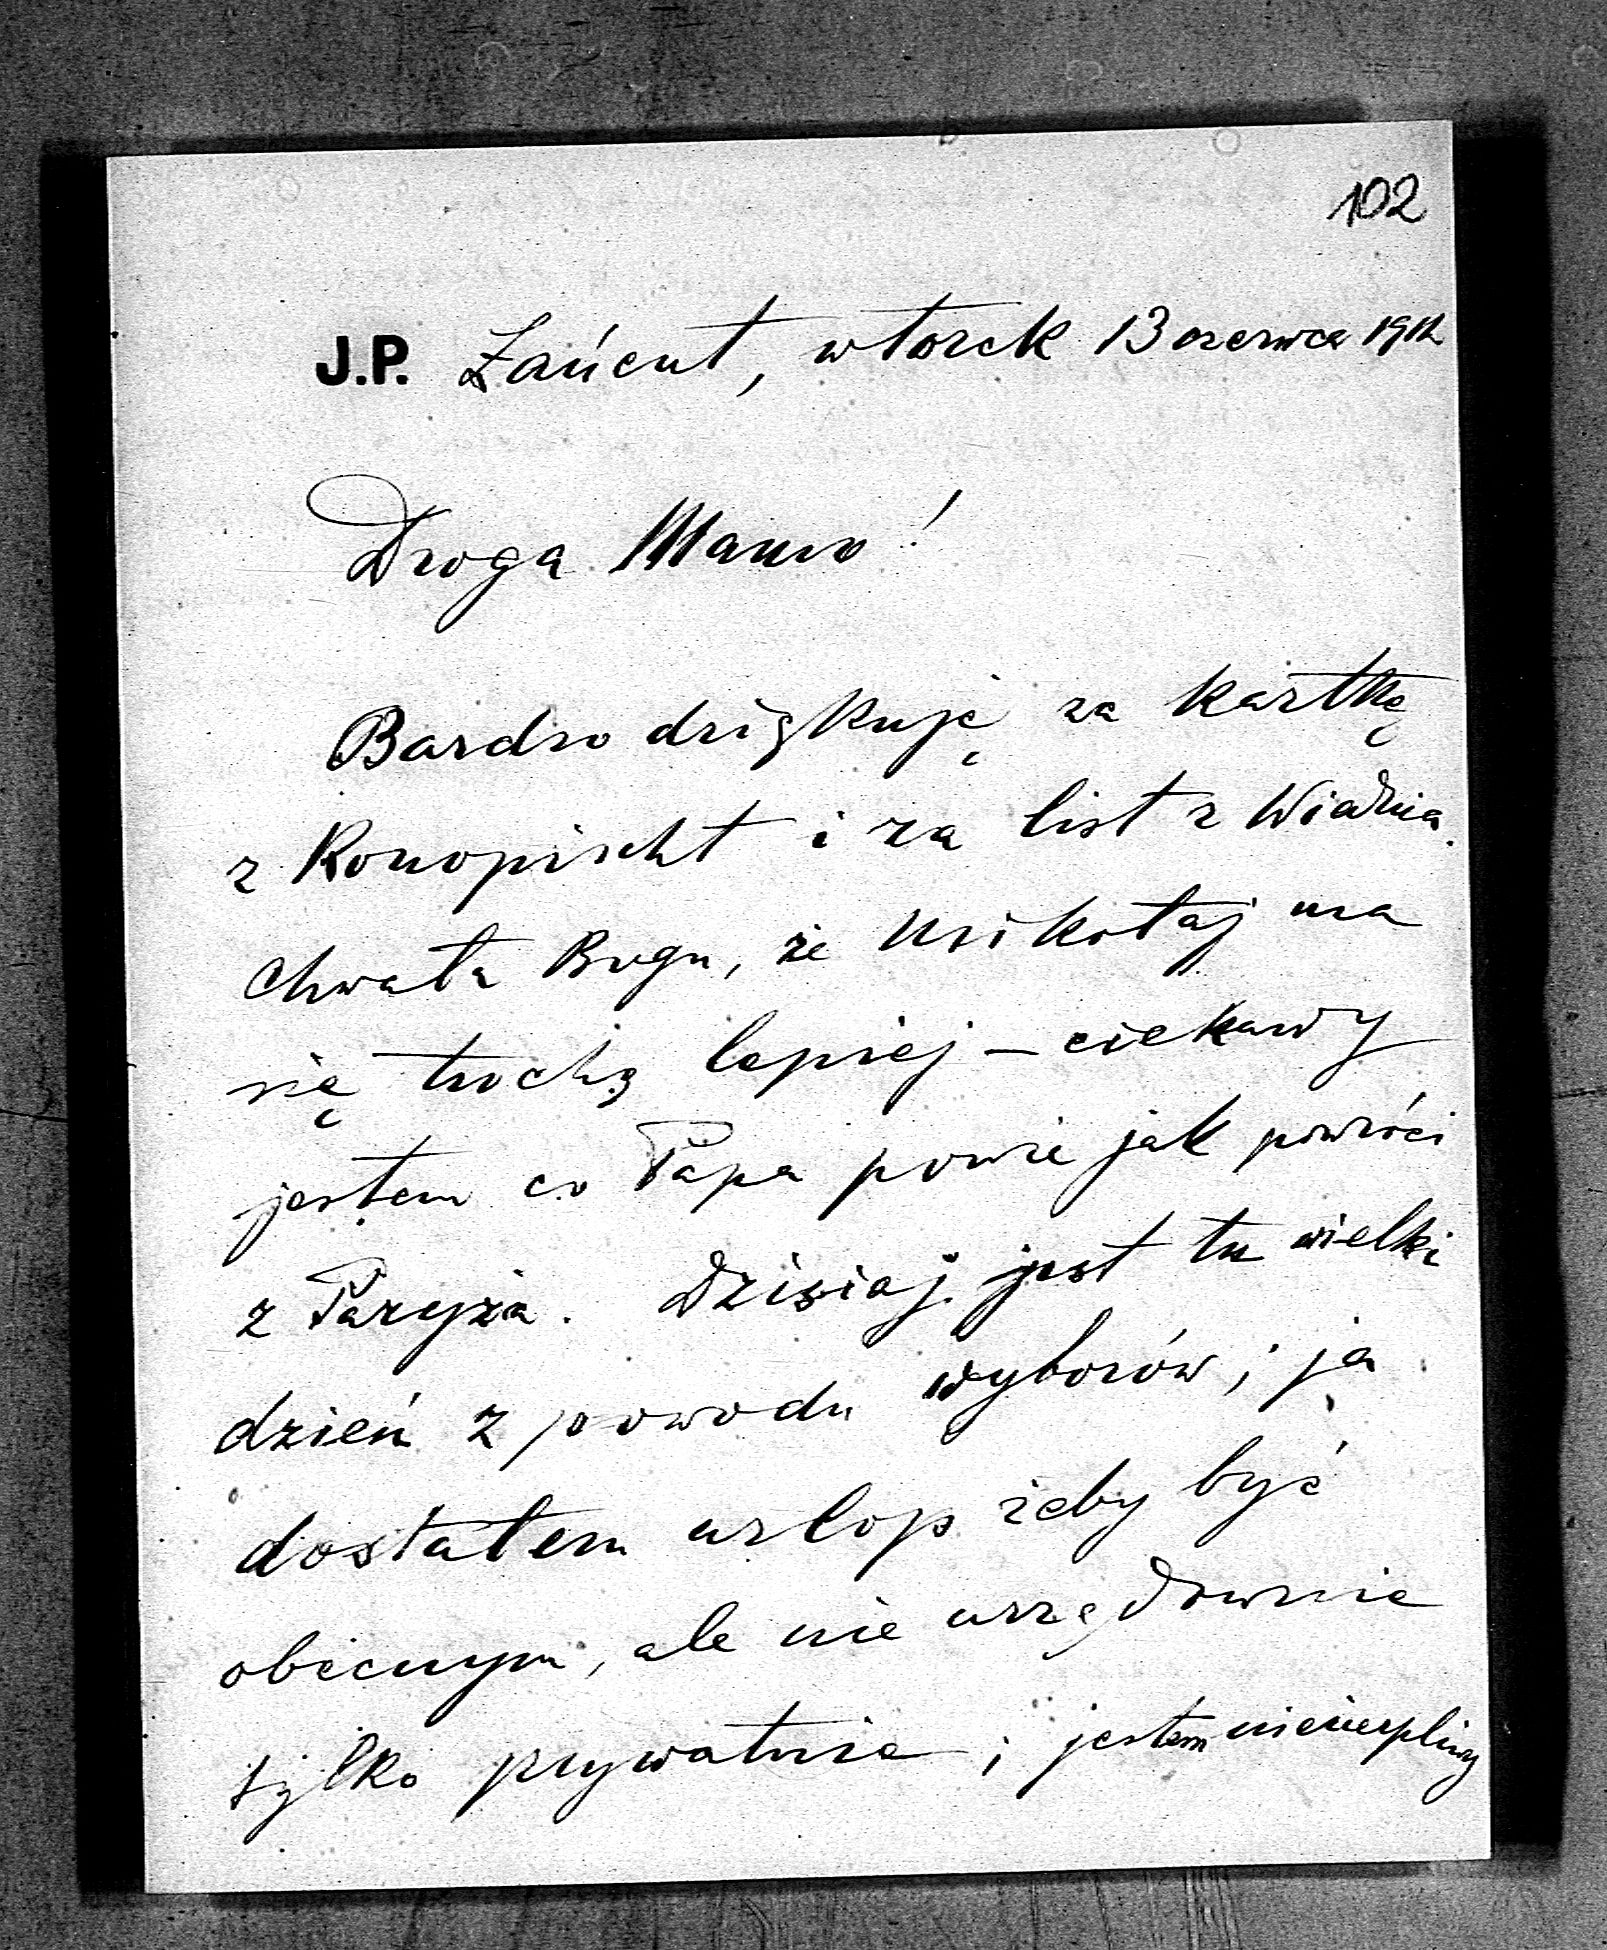 102
J.P. Łańcut, wtorek 13 czerwca 1911
Droga Mamo!
Bardzo dziękuję za kartkę
z Konopischt i za list z Wiednia.
Chwała Bogu, że Mikołaj ma
się trochę lepiej – ciekawy
jestem co Papa powie jak powróci
z Paryża. Dzisiaj jest tu wielki
dzień z powodu wyborów; ja
dostałem urlop żeby być
obecnym, ale nie urzędownie
tylko prywatnie; jestem niecierpliwy